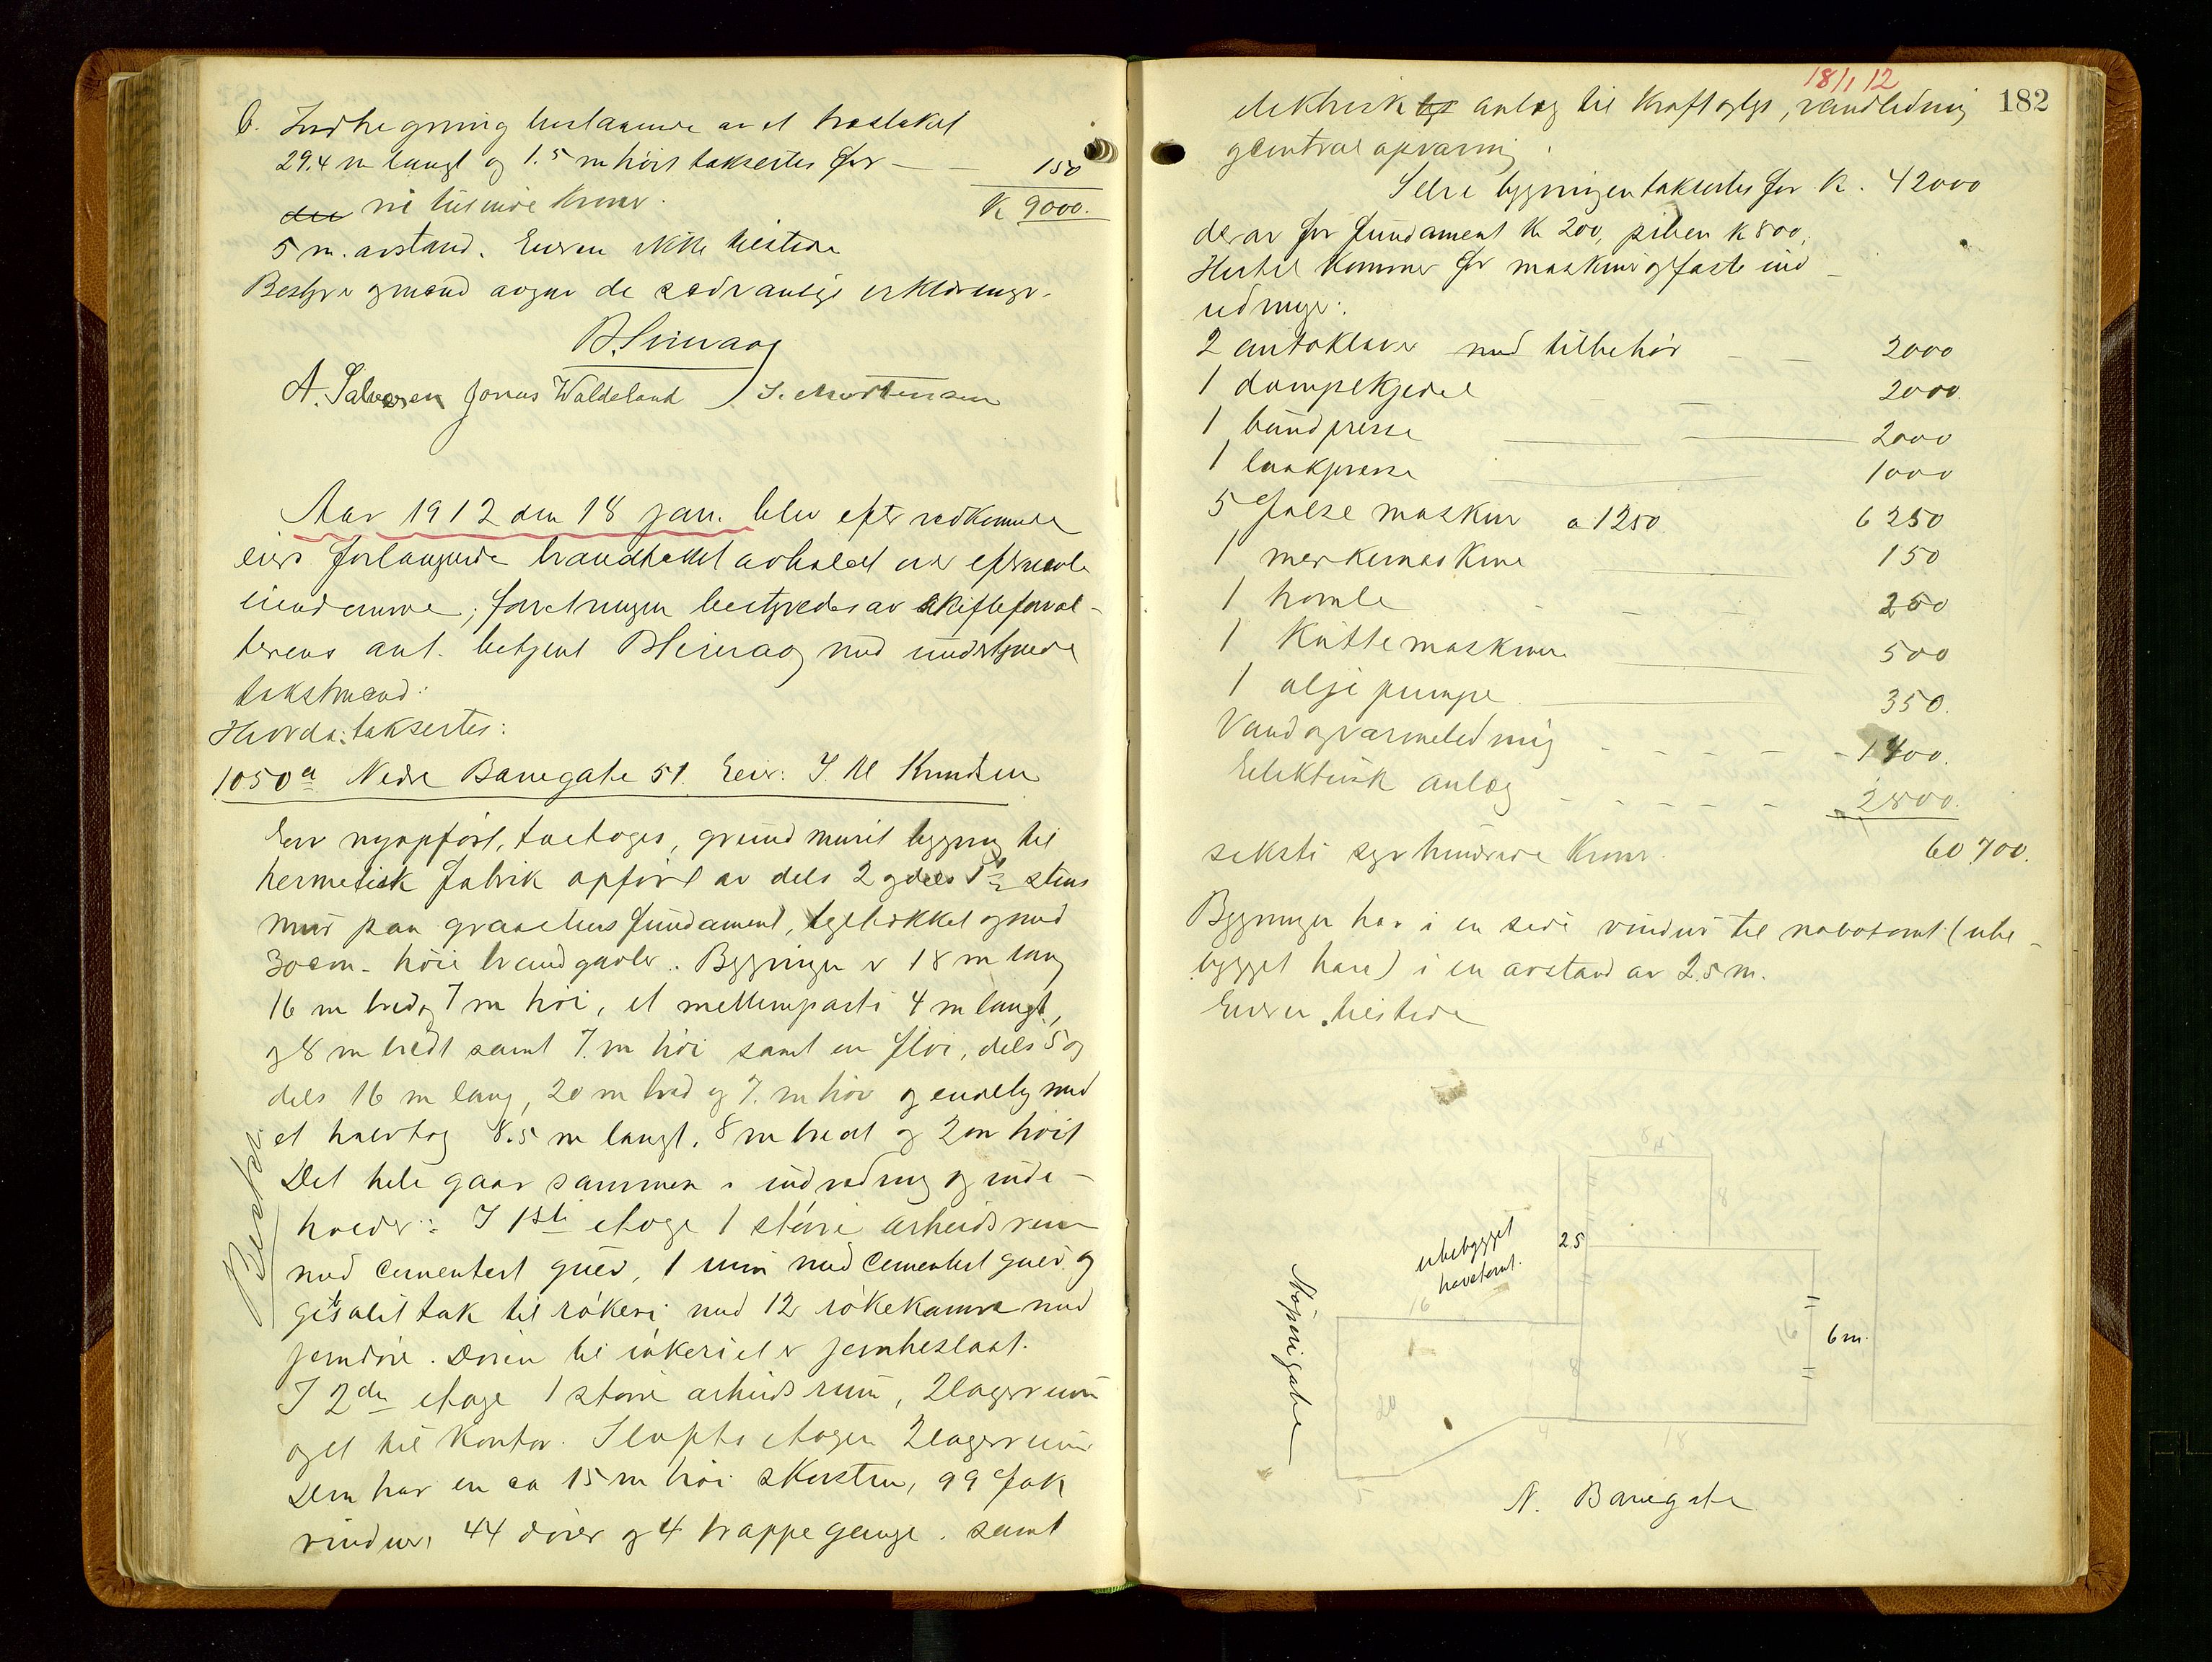 b. Indhegning bestaaende av et træstaket
29.4 m langt og 1.5 m høit taksertes for — — 150
ni tusinde Kroner. K 9000.
5 m. avstand. Eieren ikke tilstede
Bestyrer og mænd avgav de sædvanlige erklæringer.
A. Salvesen Jonas Waldeland S. Mortensen
Aar 1912 den 18 jan. blev efter vedkommende
eiers forlangende brandtakst avholdt over efternævnte
eiendomme; forretningen bestyredes av skifteforval-
terens aut. betjent med undertegnede
takstmænd:
Hvorda: taksertes:
1050a Nedre Banegate 51. Eier: Knudsen
En nyopført, toetages, grundmuret bygning til
hermetisk fabrik opført av dels 2 og dels 1½ stens
mur paa graastens fundament, tegltækket og med
30 cm. høie brandgavler. Bygningen er 18 m lang
16 m bred og 7 m høi, et mellemparti 4 m langt,
og 8 m bredt samt 7. m høi samt en fløi, dels 5 og
dels 16 m lang, 20 m bred og 7. m høi og endelig med
et halvtag 8.5 m langt, 8 m bredt og 2 m høit
Det hele gaar sammen i indredning og inde-
holder: I 1ste etage 1 større arbeidsrum
med cementert gulv, 1 rum med cementert gulv og
tak til røkeri med 12 røkekamre med
jerndøre. Døren til røkeriet er jernbeslaat.
I 2den etage 1 større arbeidsrum, 2 lagerrum
og et til Kontor. I lofts etagen 2 lagerrum
Den har en ca 15 m høi skorsten, 99 fak
vinduer, 44 dører og 4 trappegange. samt
18/1 12
182
elektrisk anlæg til Kraft og lys, vandledning
og centralopvarmning.
Selve bygningen taksertes for K. 42000
derav for fundament K 200, piben K 800,
Hertil Kommer for maskiner og faste ind-
redninger:
2 autoklaver med tilbehør — — 2000
1 dampkjedel — — 2000.
1 baandpresse — — 2000
1 laakpresse — 1000
5 false maskiner a 1250. 6250
1 merkemaskine — 150
1 tromle — 250
1 Kuttemaskine — 500
1 olje pumpe — 350.
Vand og varmeledning — 1400.
Elektrisk anlæg — 2800.
seksti syvhundrede Kroner. 60 700.
Bygningen har i en side vinduer til nabotomt (ube-
bygget have) i en avstand av 2.5 m.
Eieren tilstede
ubebygget
havetomt.
2.5
8
16
16
6 m.
8
20
4
18
5
N. Banegate